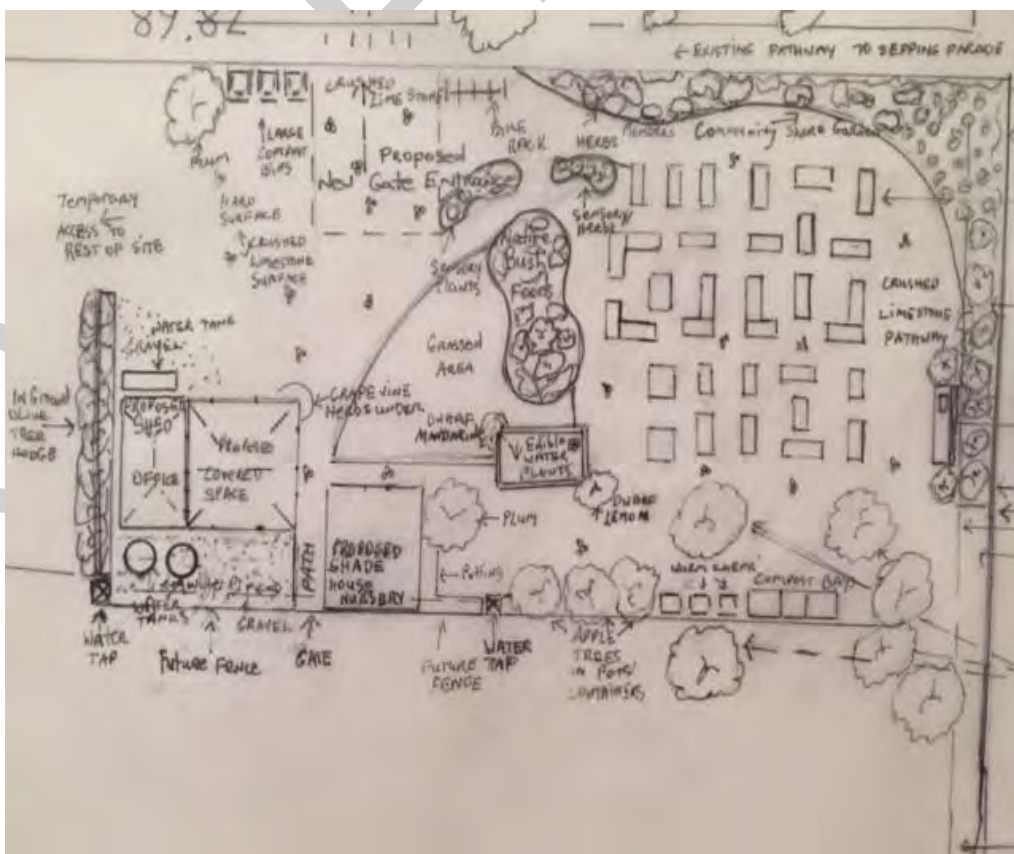 89.82
← EXISTING PATHWAY TO SEPPING PARADE
CRUSHED
LIMESTONE
BIKE
RACK
HERBS
MEMBERS Community Share Gardens
PLUM
LARGE
COMPOST
BINS
Proposed
New Gate Entrance
SENSORY/
HERBS
TEMPORARY
ACCESS TO
REST OF SITE
HARD
SURFACE
CRUSHED
LIMESTONE
SURFACE
SENSORY
PLANTS
NATIVE
BUSH
FOODS
CRUSHED
LIMESTONE
PATHWAY
WATER TANK
GRAVEL
GRASSED
AREA
INGROUND
OLIVE
TREE
HEDGE
PROPOSED
SHED
OFFICE
PROPOSED
COVERED
SPACE
GRAPEVINE
HERBS UNDER
DWARF
MANDARIN
EDIBLE
WATER
PLANTS
DWARF
LEMON
PLUM
PROPOSED
SHADE
HOUSE
NURSERY
PATH
Potting
WORM FARM
COMPOST BAYS
WATER
TANKS
WATER
TAP
FUTURE FENCE
GRAVEL
GATE
FUTURE
FENCE
WATER
TAP
APPLE
TREES
IN POTS/
CONTAINERS